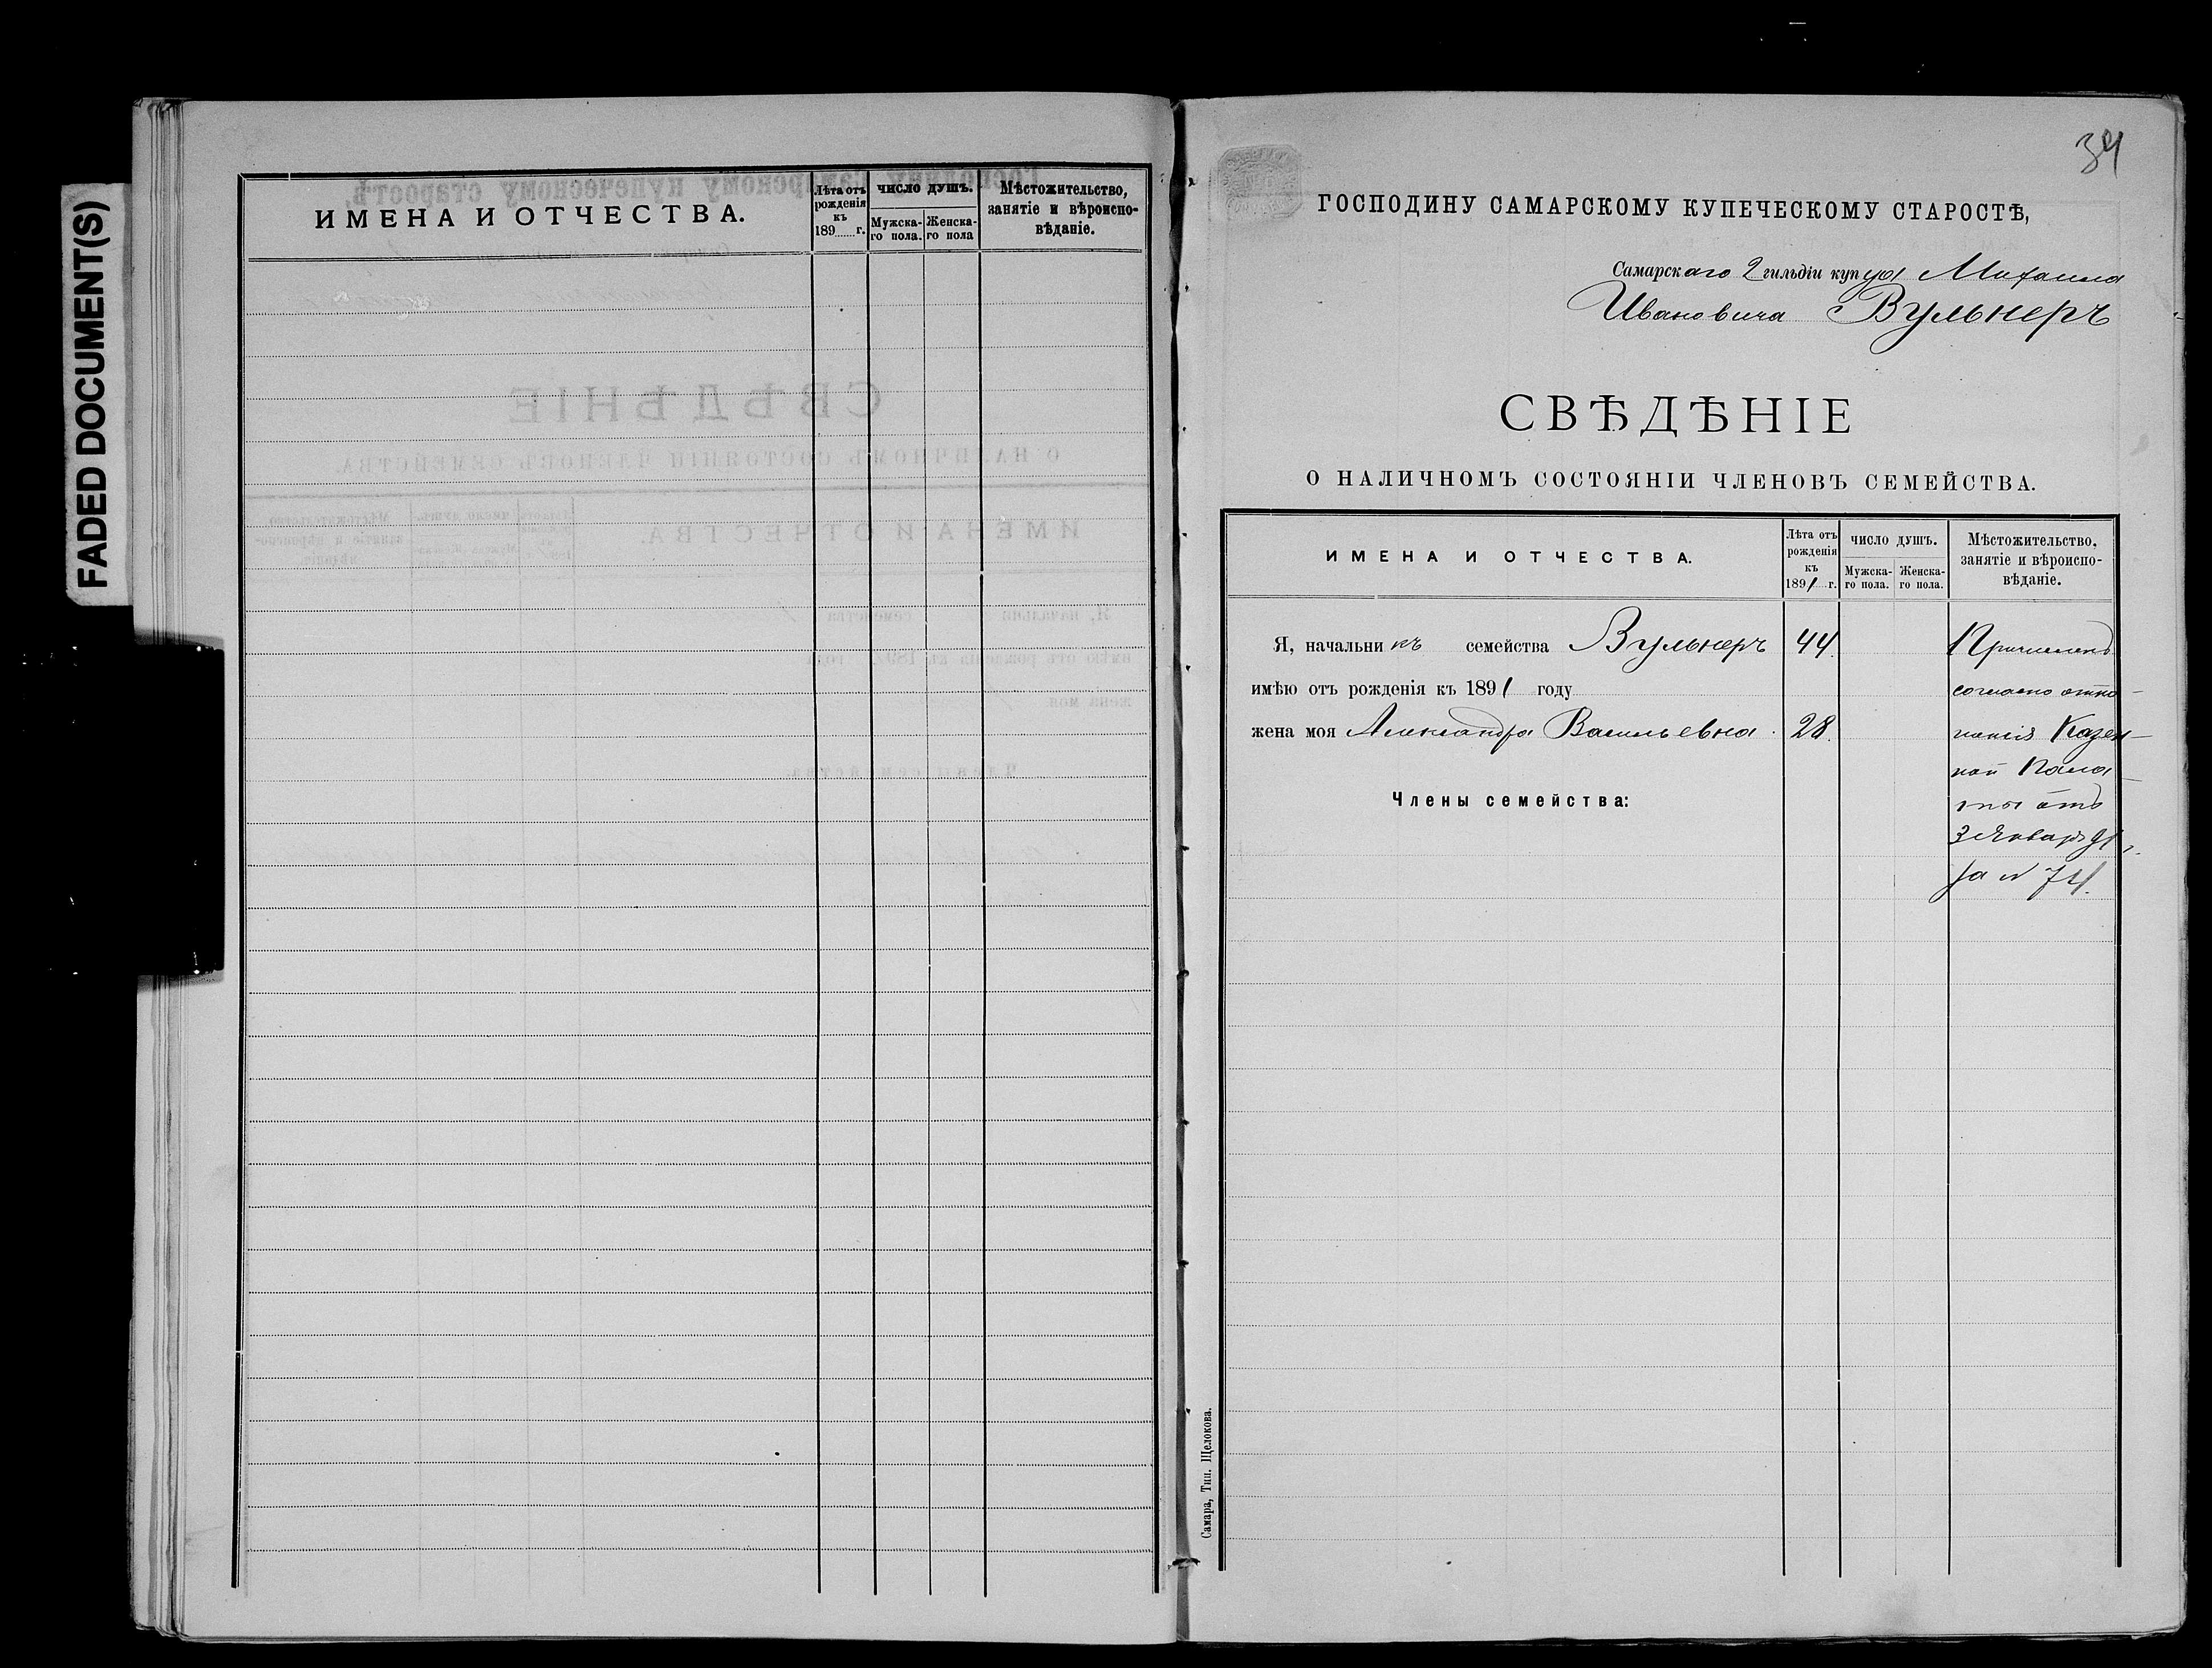 FADED DOCUMENT(S)
ИМЕНА И ОТЧЕСТВА.
Лѣта отъ рожденія къ 189 г.
ЧИСЛО ДУШЪ.
Мужска-го пола.
Женска-го пола
Мѣстожительство, занятіе и вѣроиспо-вѣданіе.
34
ГОСПОДИНУ САМАРСКОМУ КУПЕЧЕСКОМУ СТАРОСТѢ,
Самарскаго 2 гильдіи купца Михаила
Ивановича Вульнеръ
СВѢДѢНІЕ
О НАЛИЧНОМЪ СОСТОЯНІИ ЧЛЕНОВЪ СЕМЕЙСТВА.
ИМЕНА И ОТЧЕСТВА.
Лѣта отъ рожденія къ 1891 г.
ЧИСЛО ДУШЪ.
Мужска-го пола.
Женска-го пола.
Мѣстожительство, занятіе и вѣроиспо-вѣданіе.
Я, начальникъ семейства Вульнеръ 44.
имѣю отъ рожденія къ 1891 году
жена моя Александра Васильевна. 28.
Члены семейства:
Причисленъ
согласно отно-
шенія Казен-
ной Пала-
ты отъ
3 Января 91 г.
за № 74.
Самара, Тип. Щелокова.